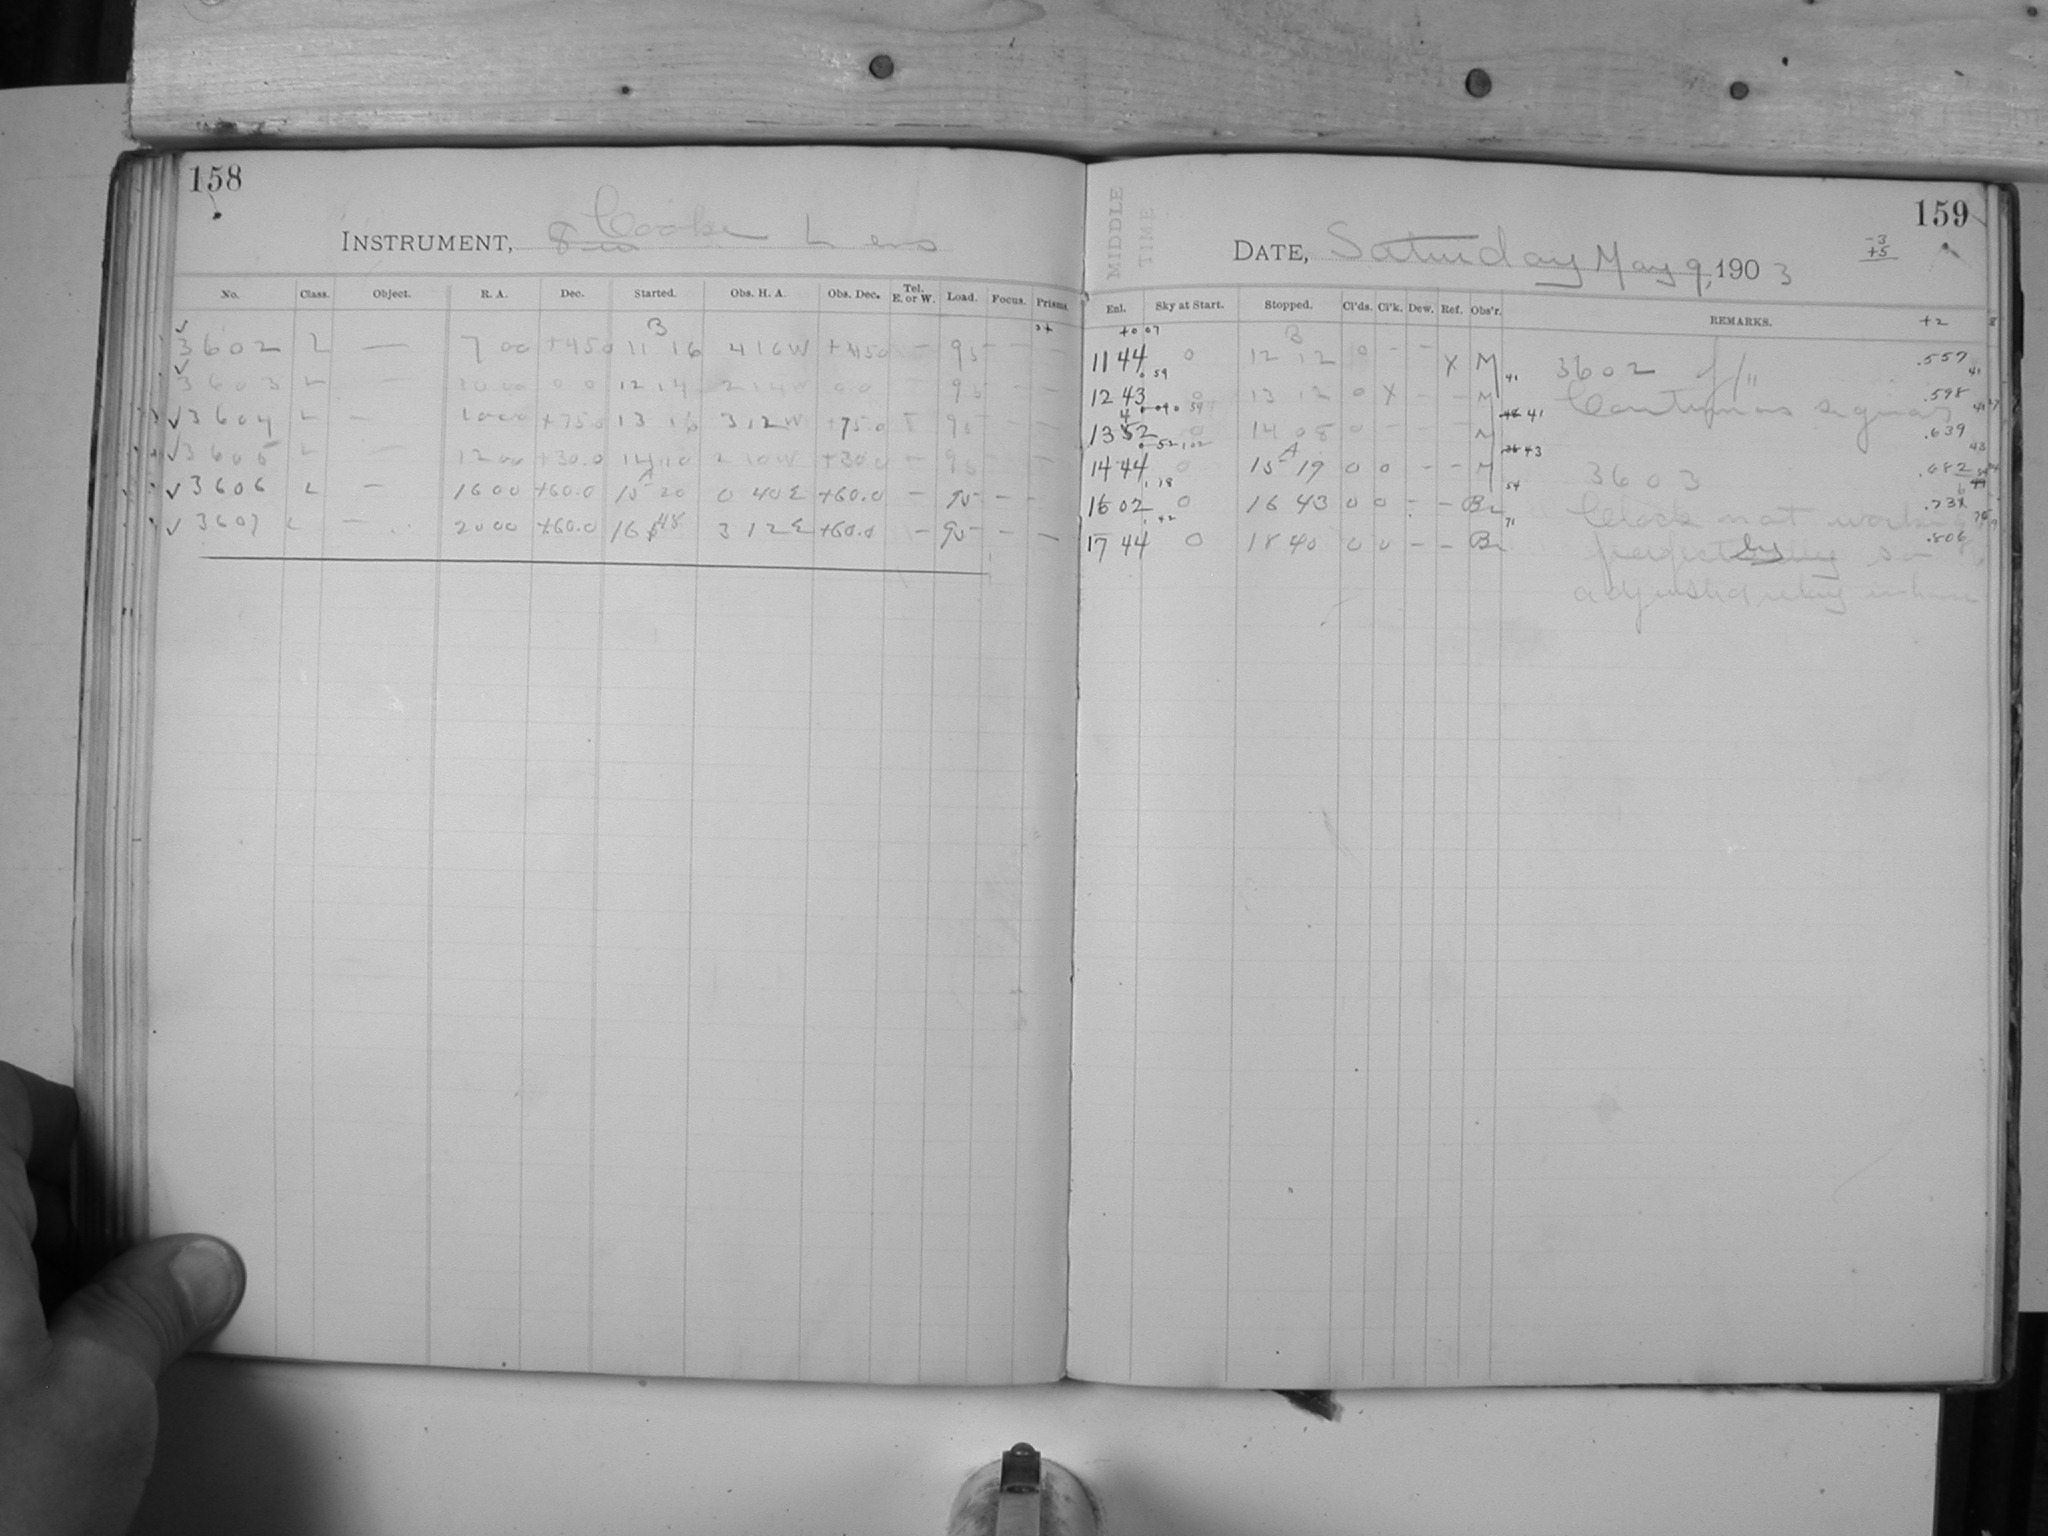 158
INSTRUMENT, 8 in Cooke Lens
No. Class. Object. R. A. Dec. Started. Obs. H. A. Obs. Dec. Tel. E. or W. Load. Focus. Prisms.
B
3602 L — 7 00 +45.0 11 16 4 16 W +45.0 — 95 — —
3603 L — 10 00 0.0 12 14 2 14 W 0.0 — 95 — —
3604 L — 10 00 +75.0 13 16 3 12 W +75.0 95 — —
3605 L — 12 00 +30.0 14 10 2 10 W +30.0 — 95 — —
3606 L — 16 00 +60.0 15 20 0 40 E +60.0 — 95 — —
3607 L — 20 00 +60.0 16 48 3 12 E +60.0 — 95 — —
159
MIDDLE TIME
DATE, Saturday May 9, 1903
-3
+5
Enl. Sky at Start. Stopped. Cl'ds. Cl'k. Dew. Ref. Obs'r. REMARKS. +2
+0 07 B
11 44 0 12 12 0 — — X M 3602 .557
12 43 0 13 12 0 X — — M Continuous signals .598
13 52 0 14 08 0 — — — M .639
14 44 0 15 19 0 0 — — M 3603 .682
16 02 0 16 43 0 0 — — Br Clock not working
17 44 0 18 40 0 0 — — Br perfectly so .806
adjusted relay